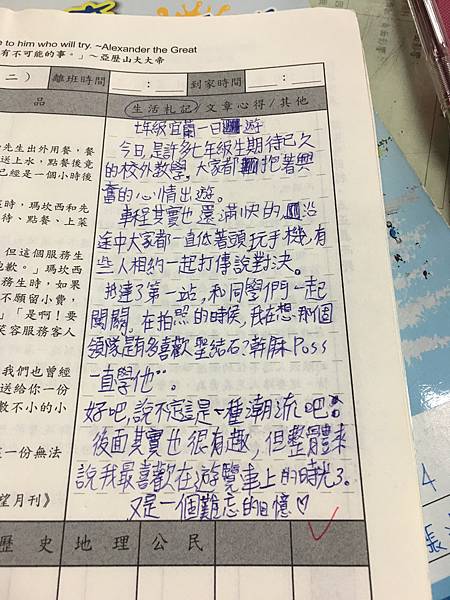 e to him who will try. ~Alexander the Great
有不可能的事。」~亞歷山大大帝
二） 離班時間 ＿＿：＿＿ 到家時間 ＿＿：＿＿
品 生活札記／文章心得／其他
先生出外用餐，餐
送上水，點餐後竟
已經是一個小時後
時，瑪坎西和先
待、點餐、上菜
但這個服務生
抱歉。」瑪坎西
務生時，如果
不願留小費，
「是啊！要
笑容服務客人
我們也曾經
送給你一份
數不小的小
一份無法
望月刊》
七年級宜蘭一日遊
今日是許多七年級生期待已久
的校外教學。大家都抱著興
奮的心情出遊。
車程其實也還滿快的沿
途中大家都一直低著頭玩手機,有
些人相約一起打傳說對決。
抵達了第一站，和同學們一起
闖關，在拍照的時候，我在想那個
領隊是有多喜歡聖結石?幹麻Poss
一直學他¨。
好吧,說不定這是一種潮流吧。
後面其實也很有趣，但整體來
說我最喜歡在遊覽車上的時光了。
又是一個難忘的回憶♡
歷史地理公民
4
張